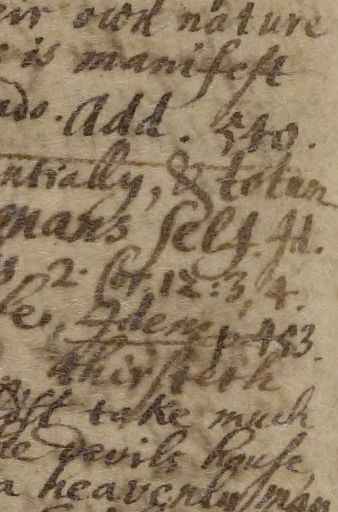 eir own nature
is manifest
Add. 540.
ntially, & totum
mans self.
2. Cor, 12:3, 4.
Idem p. 453.
thirsteth
take much
devils house
a heavenly man